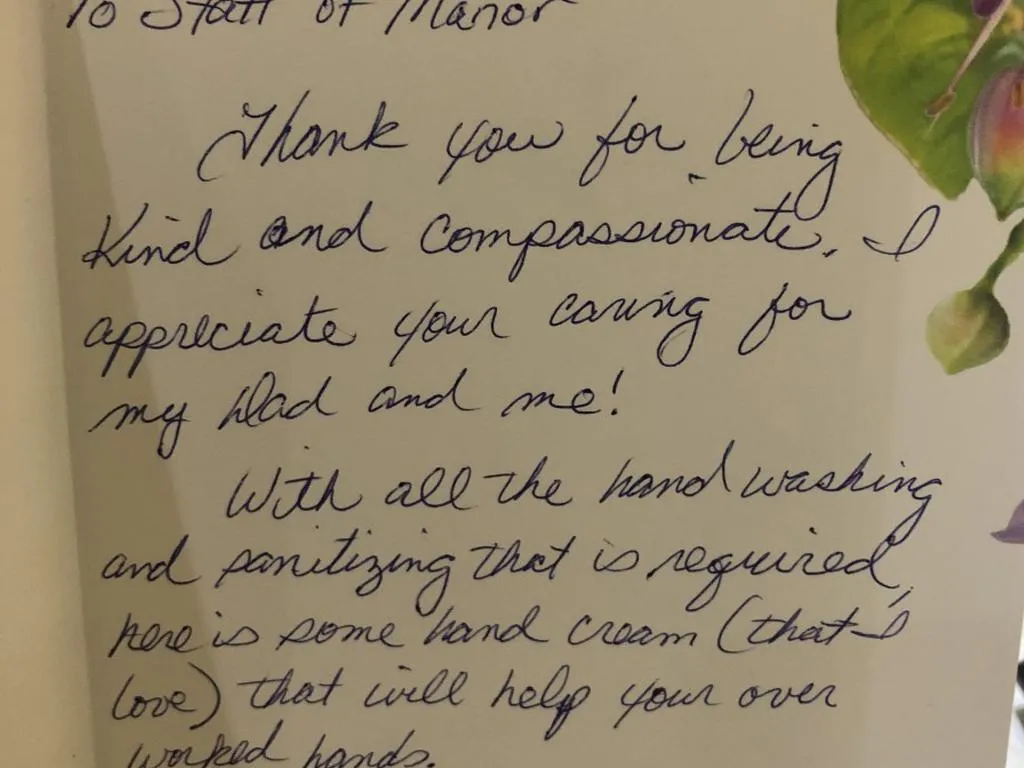 To Staff of Manor
Thank you for being
kind and compassionate. I
appreciate your caring for
my Dad and me!
With all the hand washing
and sanitizing that is required,
here is some hand cream (that I
love) that will help your over
worked hands.